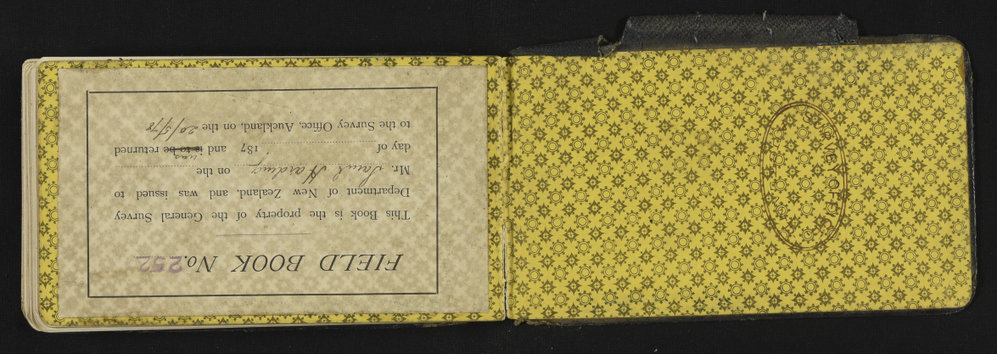 FIELD BOOK No. 252
This Book is the property of the General Survey
Department of New Zealand, and was issued to
Mr. Saml Harding on the
day of 187 and is to be was returned
to the Survey Office, Auckland, on the 20/5/78
SURVEY OFFICE
AUCKLAND